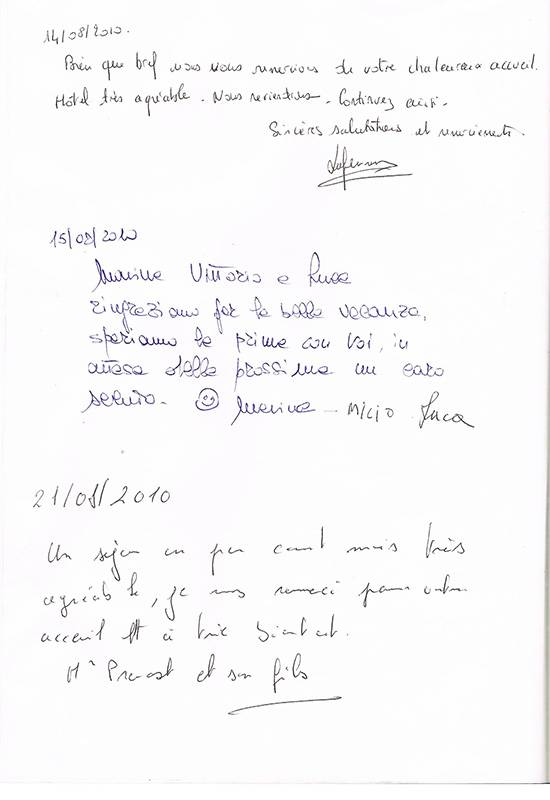 14/08/2010.
Bien que bref nous vous remercions de votre chaleureux accueil.
Hôtel très agréable. Nous reviendrons. Continuez ainsi.
Sincères salutations et remerciements.
15/08/2010
Marina Vittorio e Luca
ringraziano per la bella vacanza,
speriamo la prima con voi, in
attesa della prossima un caro
saluto. Marina - MICIO Luca
21/08/2010
Un séjour un peu court mais très
agréable, je vous remerci pour votre
accueil et à très bientôt.
Mr Prevost et son fils